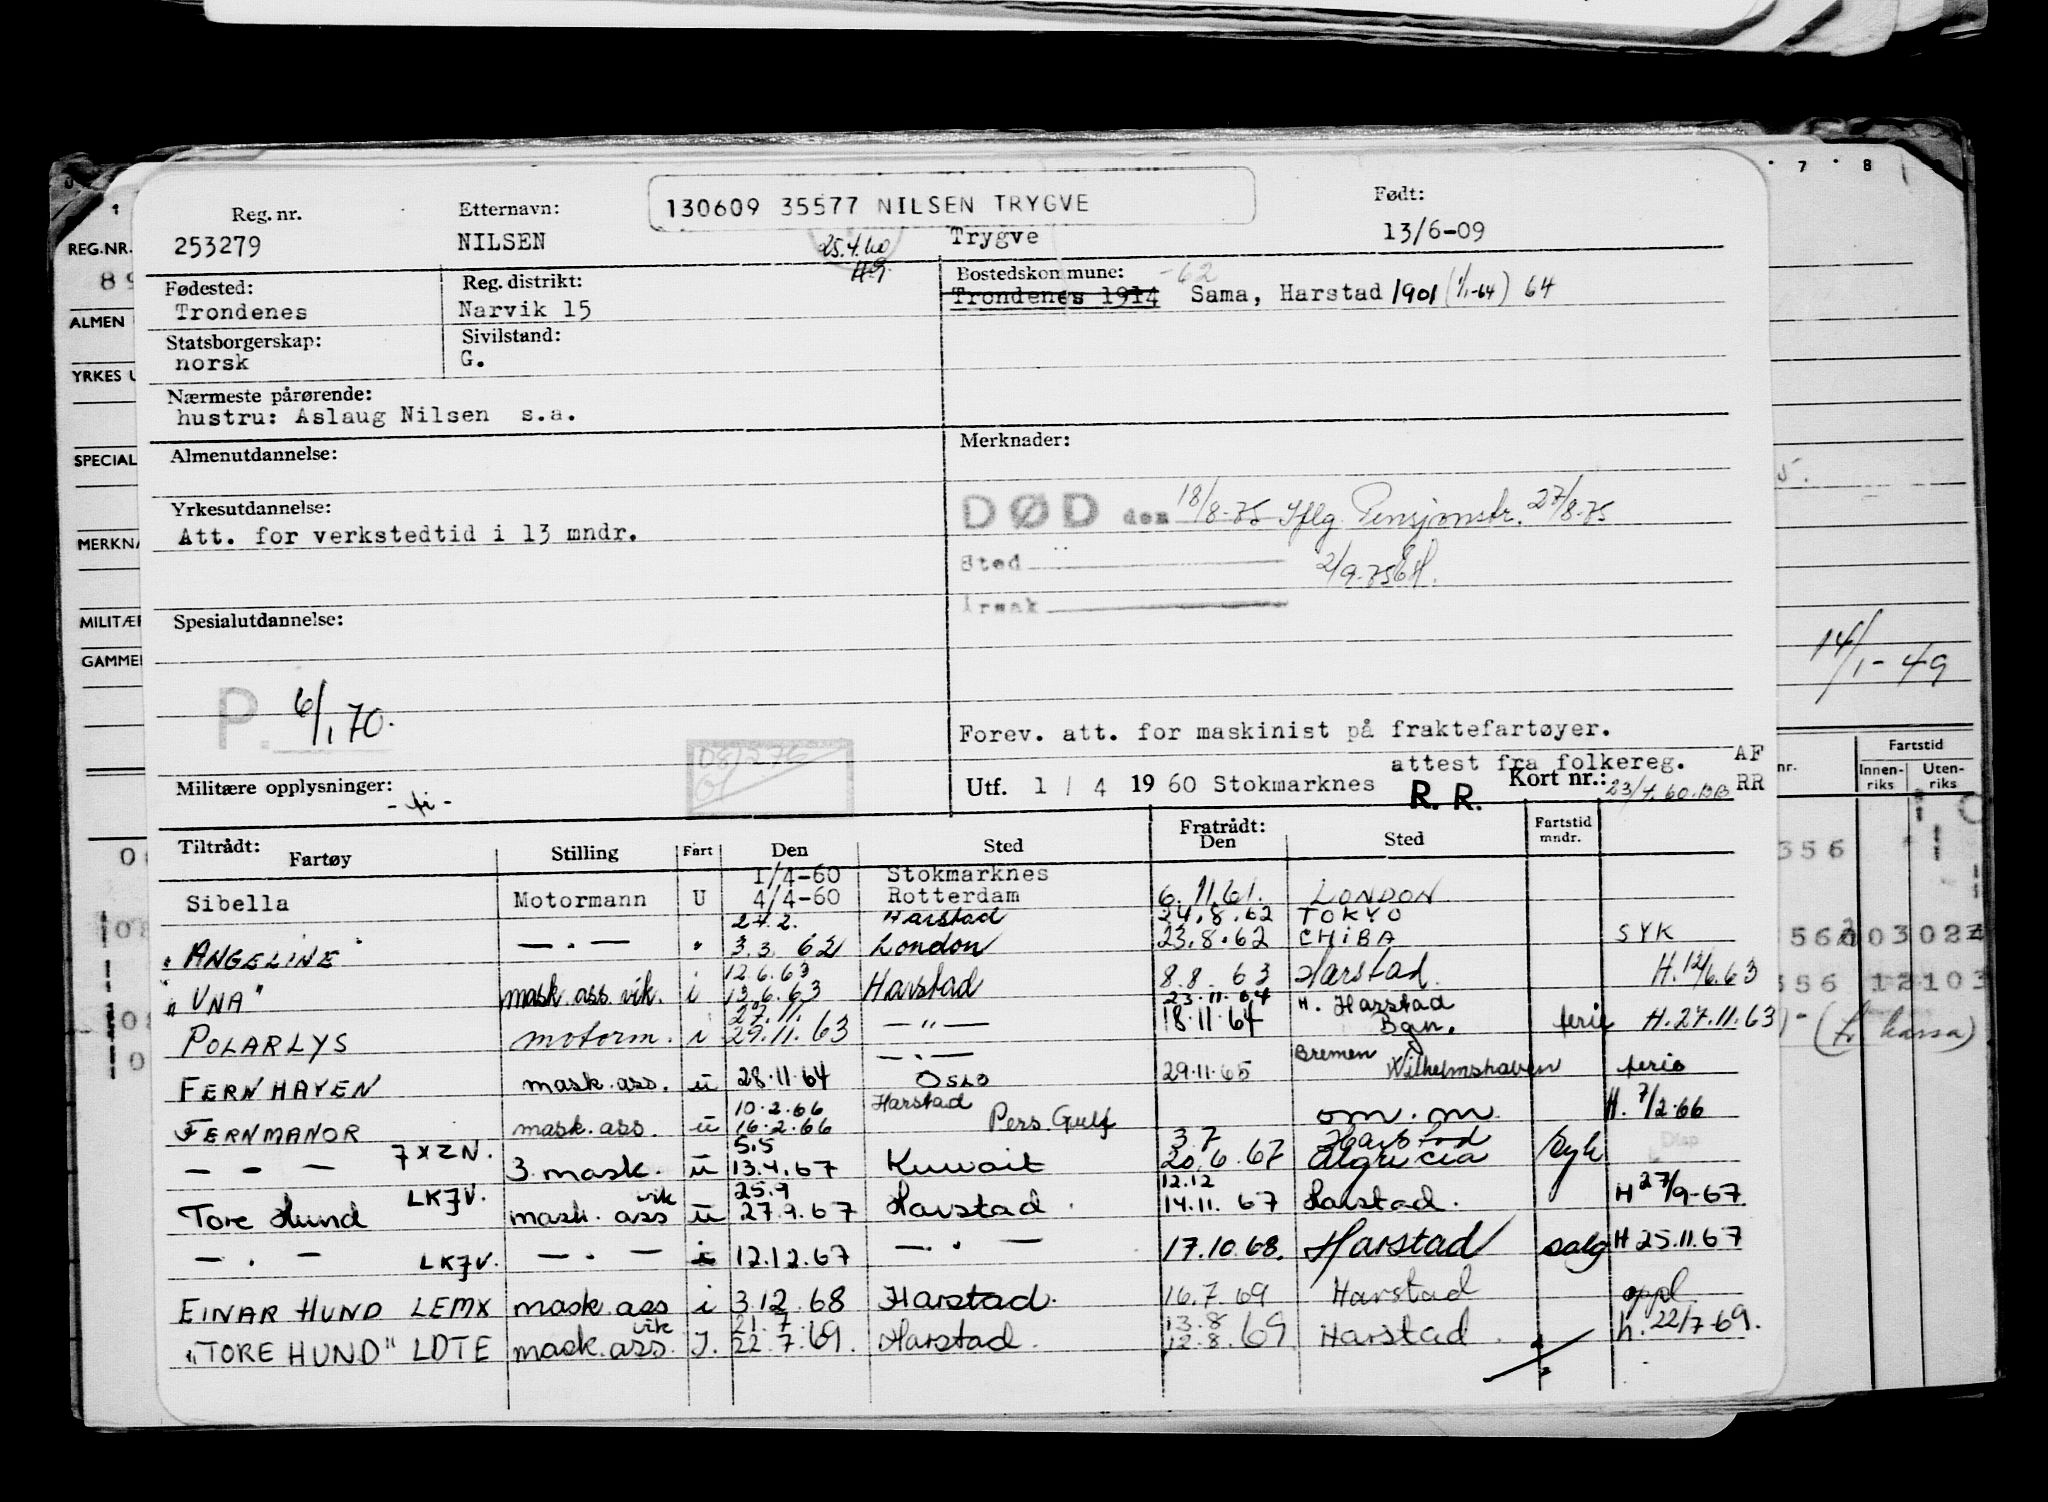 130609 35577 NILSEN TRYGVE
Reg. nr. Etternavn: Født:
253279 NILSEN 25.4.60 Trygve 13/6-09
Fødested: Reg. distrikt: Bostedskommune: -62
Trondenes Narvik 15 Trondenes 1914 Sama, Harstad 1901 (1/1-64) 64
Statsborgerskap: Sivilstand:
norsk G.
Nærmeste pårørende:
hustru: Aslaug Nilsen s.a.
Almenutdannelse: Merknader:
Yrkesutdannelse: DØD den 18/8-75 Iflg. Pensjonstr. 27/8-75
Att. for verkstedtid i 13 mndr.
Sted 2/9-75
Årsak
Spesialutdannelse:
P. 6/1 70.
Forev. att. for maskinist på fraktefartøyer.
attest fra folkereg. AF
Militære opplysninger: Utf. 1 / 4 1960 Stokmarknes R. R. Kort nr.: 23/4.60 RR
Tiltrådt: Fratrådt: Fartstid
Fartøy Stilling Fart Den Sted Den Sted mndr.
1/4-60 Stokmarknes
Sibella Motormann U 4/4-60 Rotterdam 6.11.61. LONDON
27.2. Harstad 24.8.62 TOKYO
"ANGELINE" — . — " 3.3.62 London 23.8.62 CHIBA SYK
12.6.63
"UNA" mask.ass.vik. i 13.6.63 Harstad 8.8.63 Harstad. H.12/6.63
27.11. 23.11.64 H. Harstad
POLARLYS motorm. i 29.11.63 — " — 18.11.64 Bgn. ferie H.27.11.63
— . — Bremen
FERNHAVEN mask.ass. u 28.11.64 Oslo 29.11.65 Wilhelmshaven ferie
10.2.66 Harstad
FERNMANOR mask.ass. u 16.2.66 Pers Gulf om.m H. 7/2.66
5.5 3.7 Harstad
— - — 7XZN. 3. mask. u 13.4.67 Kuwait 20.6.67 Algecira Syk
vik 25.9 12.12
Tore Hund LKJV. mask. ass u 27.9.67 Harstad 14.11.67 Harstad. H 27/9-67
— . — LKJV. — . — i 12.12.67 — . — 17.10.68. Harstad salg H 25.11.67
EINAR HUND LEMX mask.ass i 3.12.68 Harstad. 16.7.69 Harstad oppl
vik 21.7 13.8
"TORE HUND" LDTE mask.ass. I. 22.7.69. Harstad. 12.8.69 Harstad. h. 22/7-69.
REG.NR.
ALMEN
YRKES
SPECIAL
MERKNA
MILITÆR
GAMMEL
7 8
14/1-49
Fartstid
nr. Innenriks Utenriks
(fr kassa)